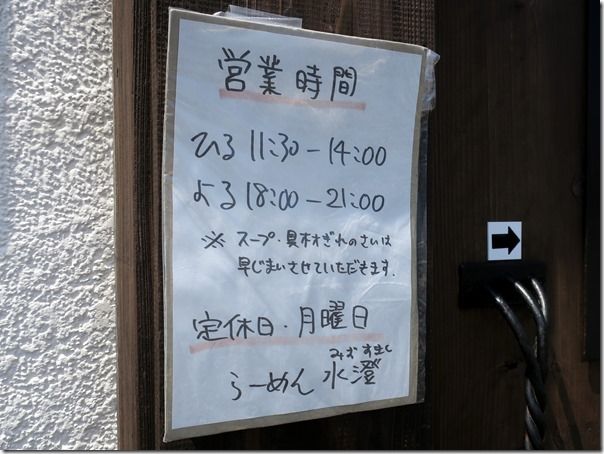 営業時間
ひる 11:30-14:00
よる 18:00-21:00
※ スープ・具材ぎれのさいは
早じまいさせていただきます.
定休日・月曜日
みずすまし
らーめん 水澄